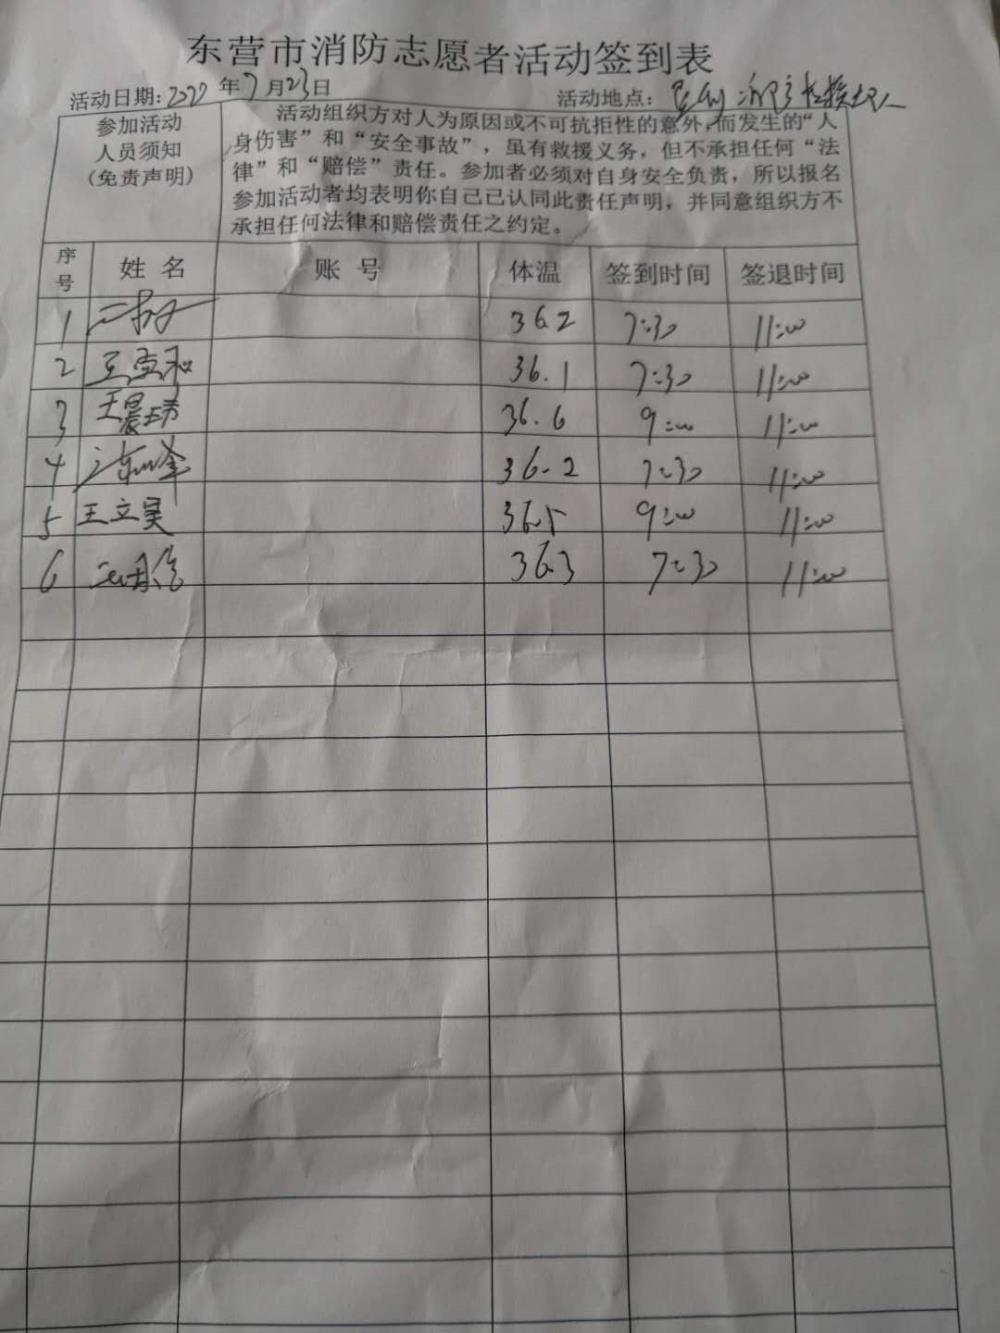 东营市消防志愿者活动签到表
活动日期: 年7月23日
活动地点:
参加活动
人员须知
(免责声明)
活动组织方对人为原因或不可抗拒性的意外,而发生的“人
身伤害”和“安全事故”,虽有救援义务,但不承担任何“法
律”和“赔偿”责任。参加者必须对自身安全负责,所以报名
参加活动者均表明你自己已认同此责任声明,并同意组织方不
承担任何法律和赔偿责任之约定。
序号 姓名 账号 体温 签到时间 签退时间
1 36.2 7:30 11:00
2 36.1 7:30 11:00
3 36.6 9:00 11:00
4 36.2 7:30 11:00
5 王立 36.5 9:00 11:00
6 36.3 7:30 11:00